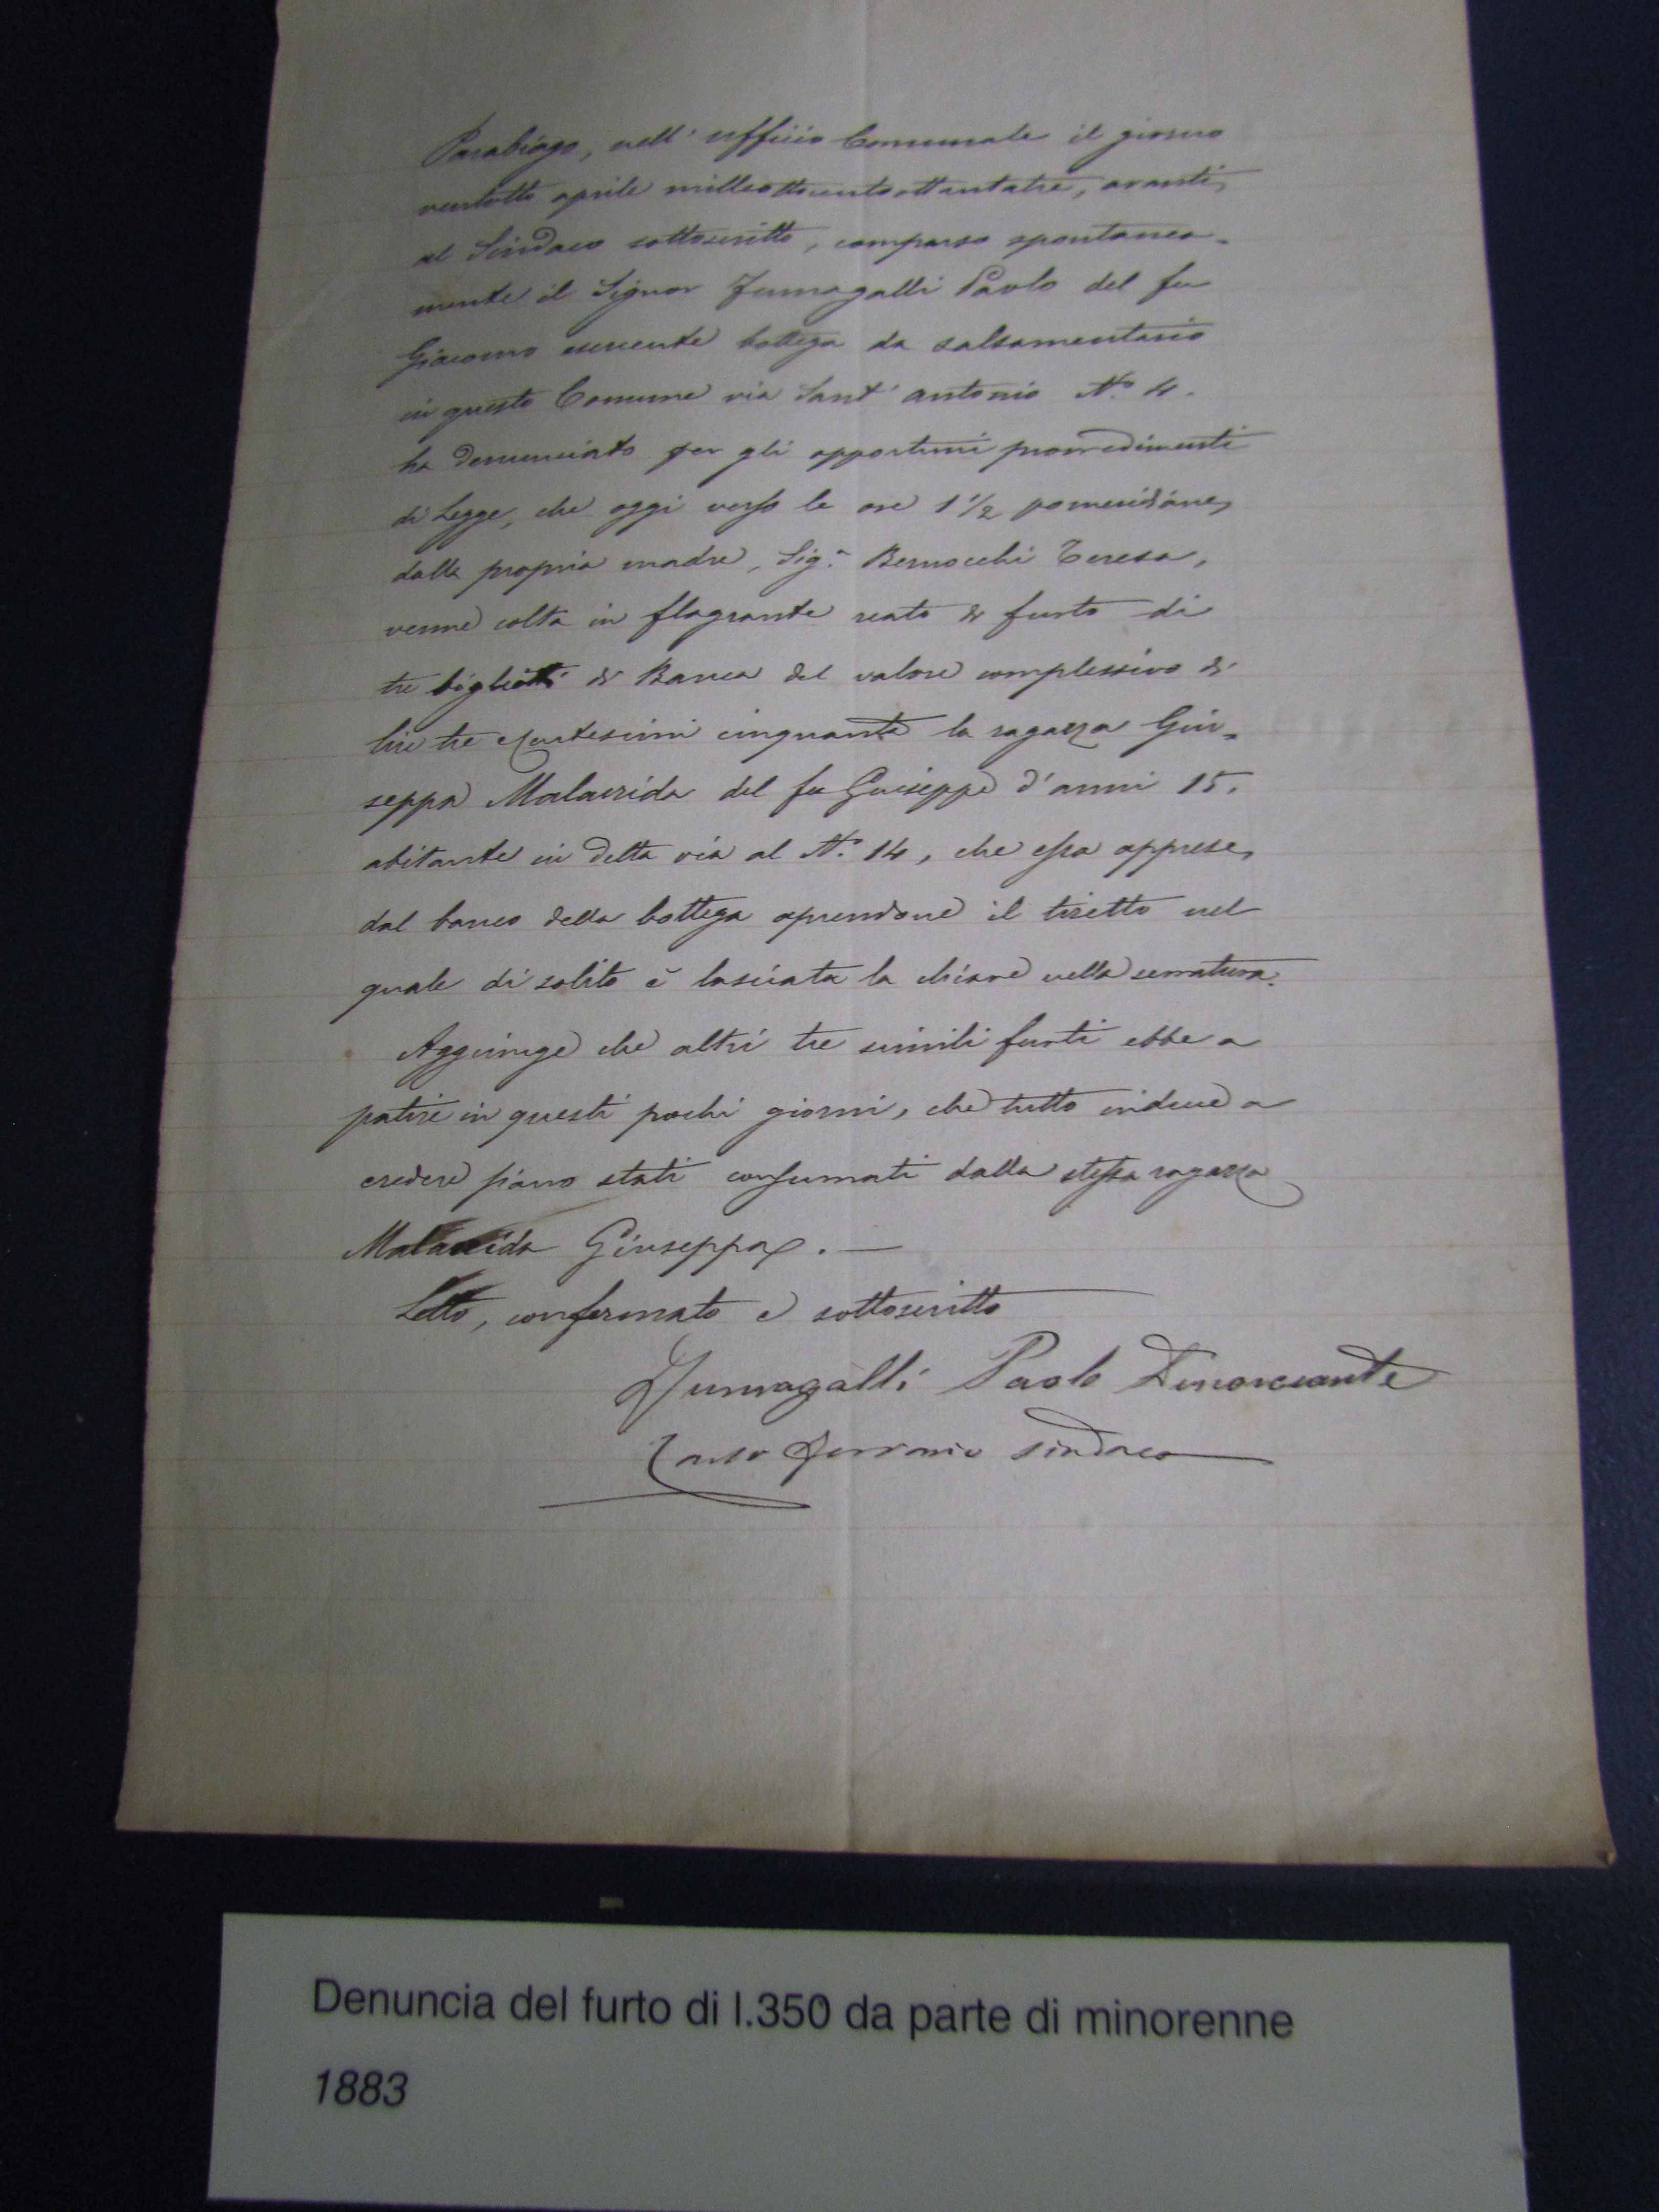 Parabiago, nell' ufficio Comunale il giorno
ventotto aprile milleottocentoottantatre, avanti
al Sindaco sottoscritto, comparso spontanea-
mente il Signor Fumagalli Paolo del fu
Giacomo esercente bottega da salsamentario
in questo Comune via Sant' Antonio N.° 4.
ha denunciato per gli opportuni provvedimenti
di Legge, che oggi verso le ore 1 1/2 pomeridiane,
dalla propria madre, Sig.ª Bernocchi Teresa,
venne colta in flagrante reato di furto di
tre biglietti di Banca del valore complessivo di
lire tre e centesimi cinquanta la ragazza Giu-
seppa Malavrida del fu Giuseppe d'anni 15.
abitante in detta via al N.° 14, che essa apprese,
dal banco della bottega aprendone il tiretto nel
quale di solito è lasciata la chiave nella serratura.
Aggiunge che altri tre simili furti ebbe a
patire in questi pochi giorni, che tutto induce a
credere siano stati consumati dalla stessa ragazza
Malavrida Giuseppa. —
Letto, confermato e sottoscritto
Fumagalli Paolo Denonciante
Ferrario Sindaco
Denuncia del furto di l.350 da parte di minorenne
1883